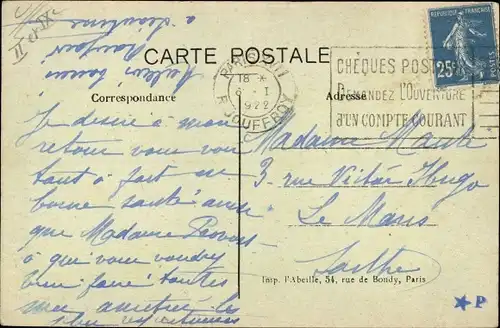 II et IX
CARTE POSTALE
Correspondance
Adresse
PARIS XVII
18 *
6 - I
1922
R. JOUFFROY
CHÈQUES POSTAUX
DEMANDEZ L'OUVERTURE
D'UN COMPTE COURANT
RÉPUBLIQUE FRANÇAISE
25c
POSTES
Je désire à mon
retour vous voir
tout à fait en
bonne santé ainsi
que Madame
à qui vous voudrez
bien faire toutes
mes amitiés les
Meilleurs baisers
Madame
3, rue Victor Hugo
Le Mans
Sarthe
Imp. l'Abeille, 54, rue de Bondy, Paris
★P